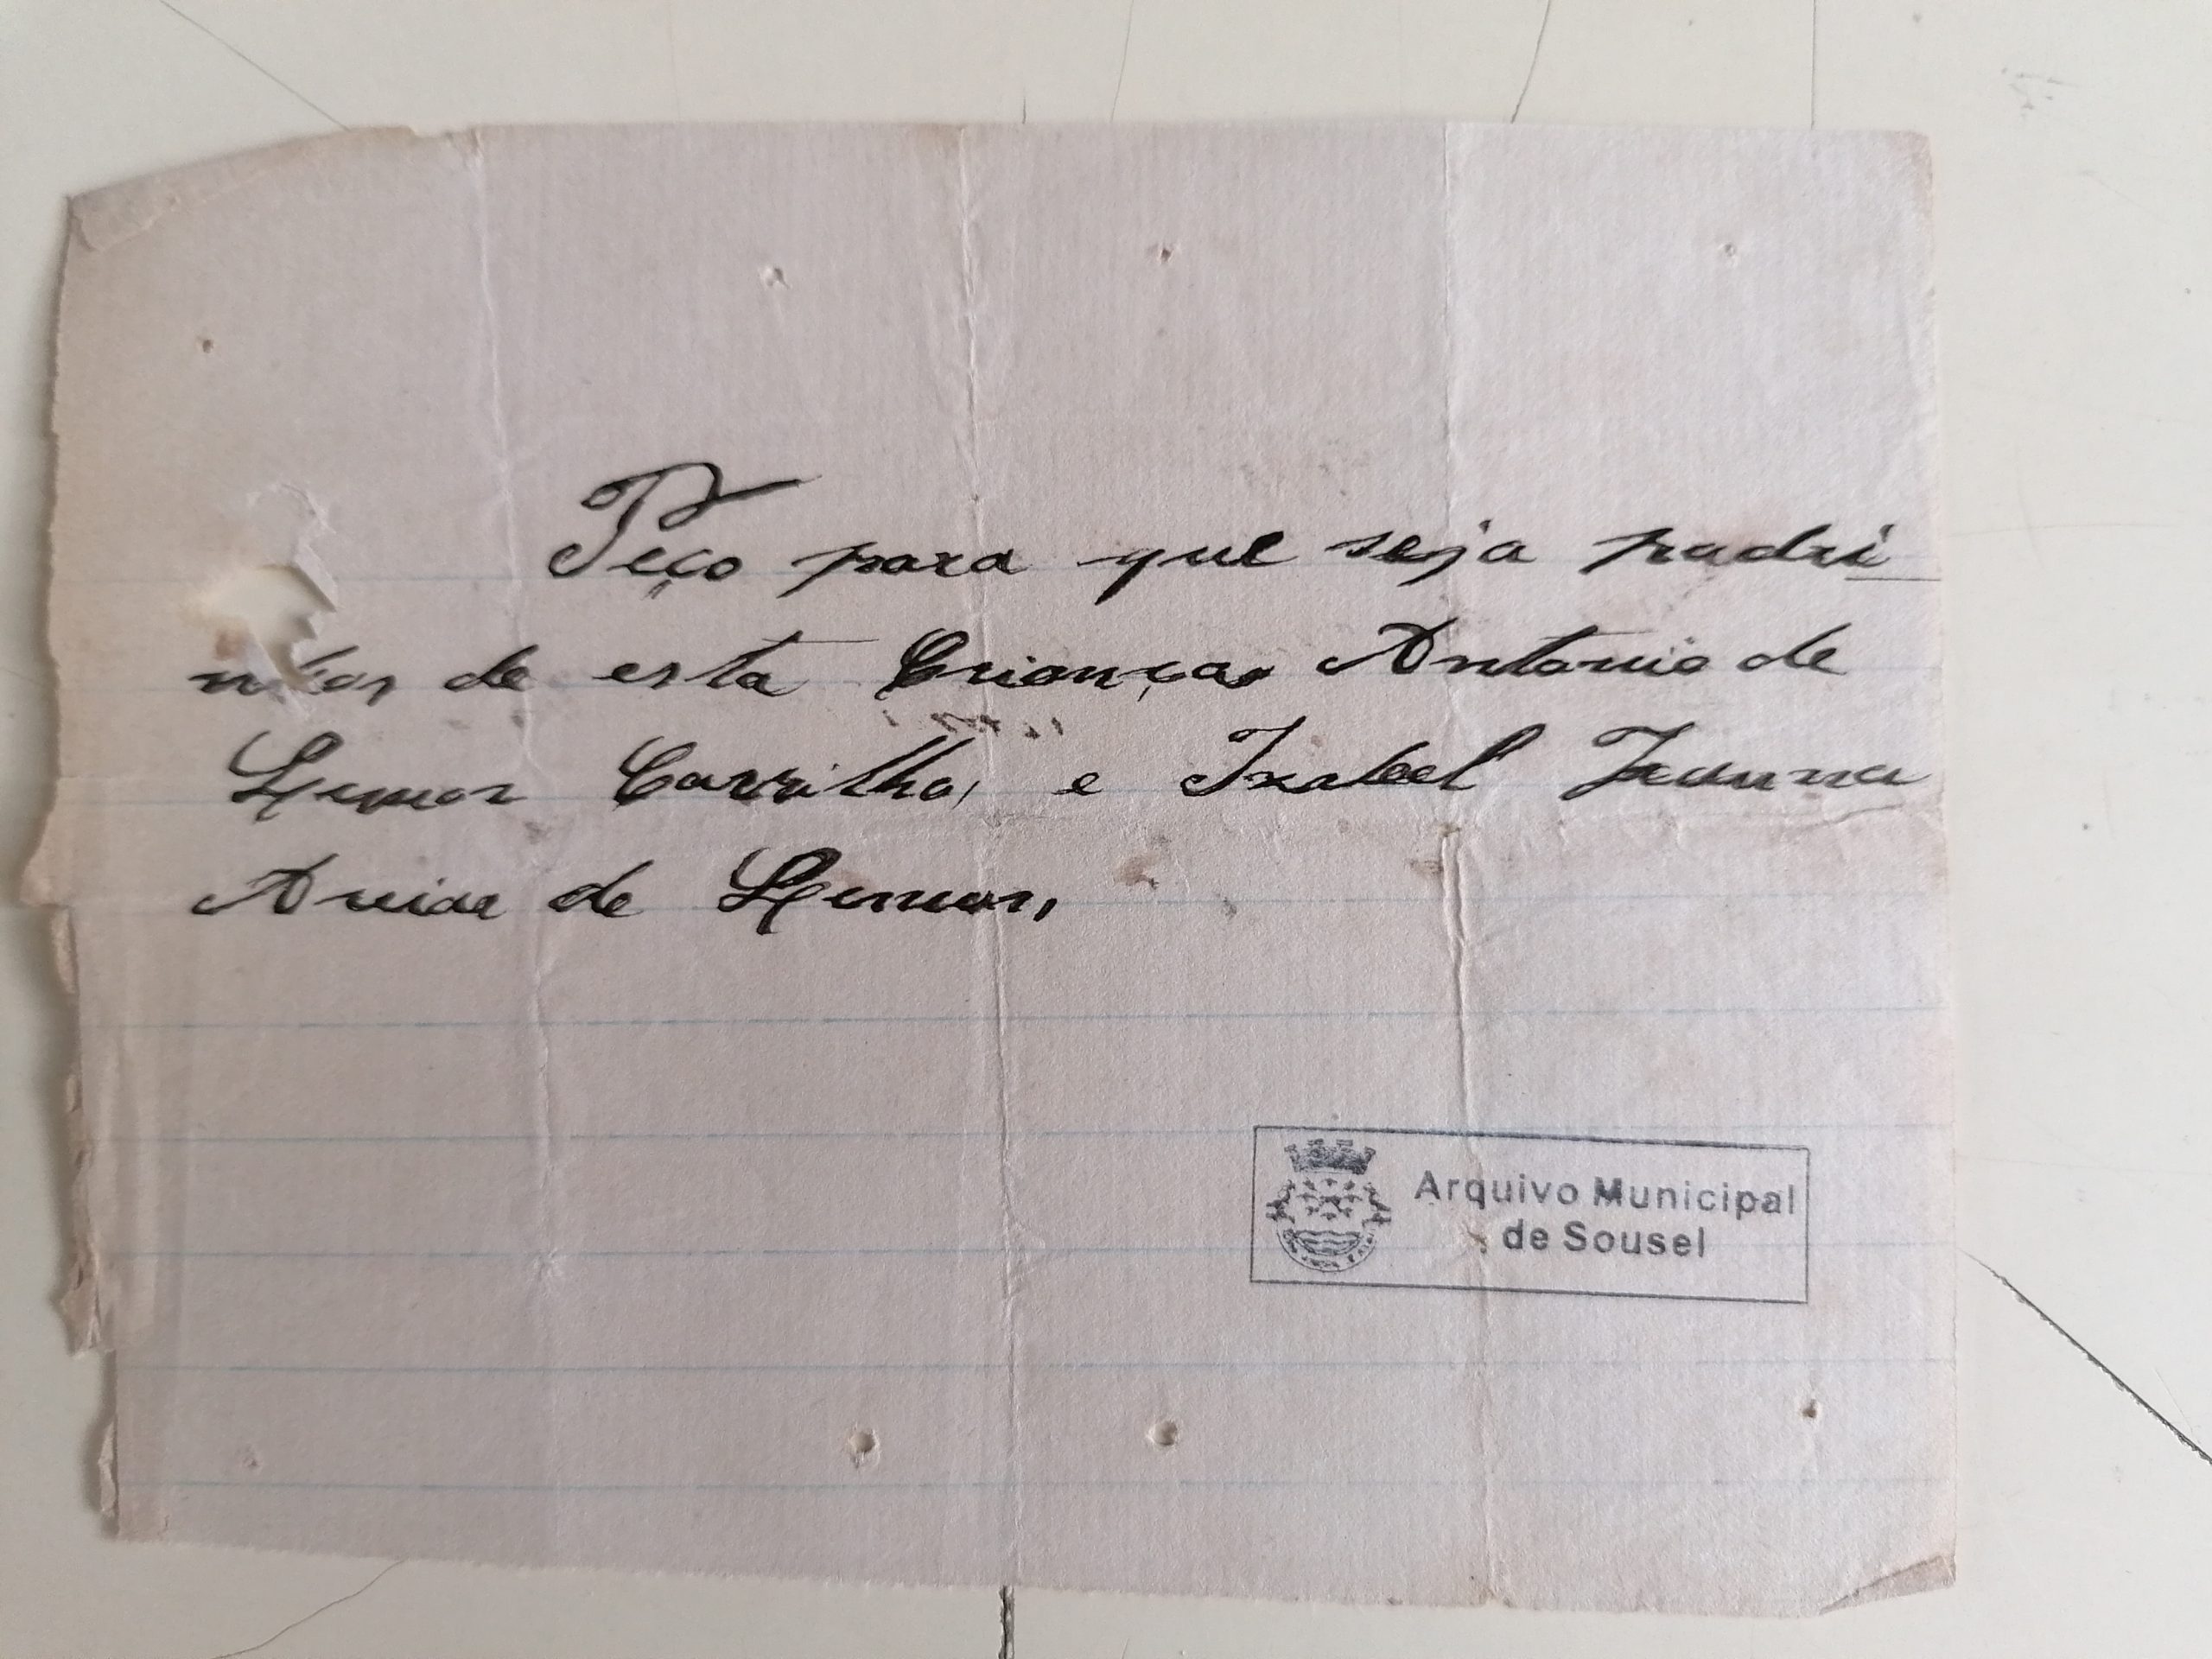 Peço para que seja padri
nhos de esta Criança Antonio de
Lemos Carrilho, e Izabel Joanna
de Lemos,
Arquivo Municipal
de Sousel